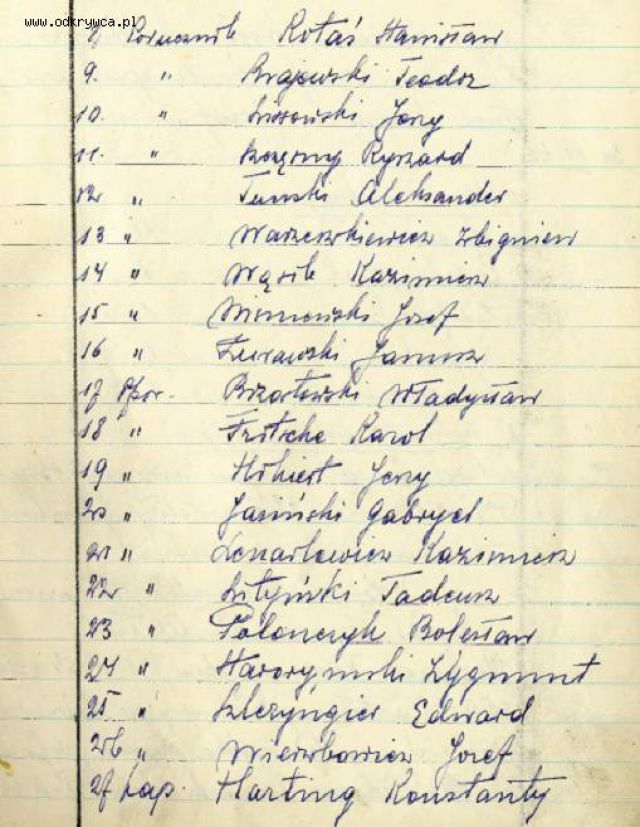 www.odkrywca.pl
8. Porucznik Kotaś Stanisław
9. " Krajewski Teodor
10. " Lisowski Jerzy
11. " Szczęsny Ryszard
12 " Tunski Aleksander
13 " Warzeszkiewicz Zbigniew
14 " Wąsik Kazimierz
15 " Wiśniewski Józef
16 " Żurawski Janusz
17 Ppor. Władysław
18 " Fritsche Karol
19 " Jerzy
20 " Jasiński Gabryel
21 " Lenartowicz Kazimierz
22 " Tadeusz
23 " Polończyk Bolesław
24 " Zygmunt
25 " Szlezyngier Edward
26 " Wierzbowicz Józef
27 Harting Konstanty